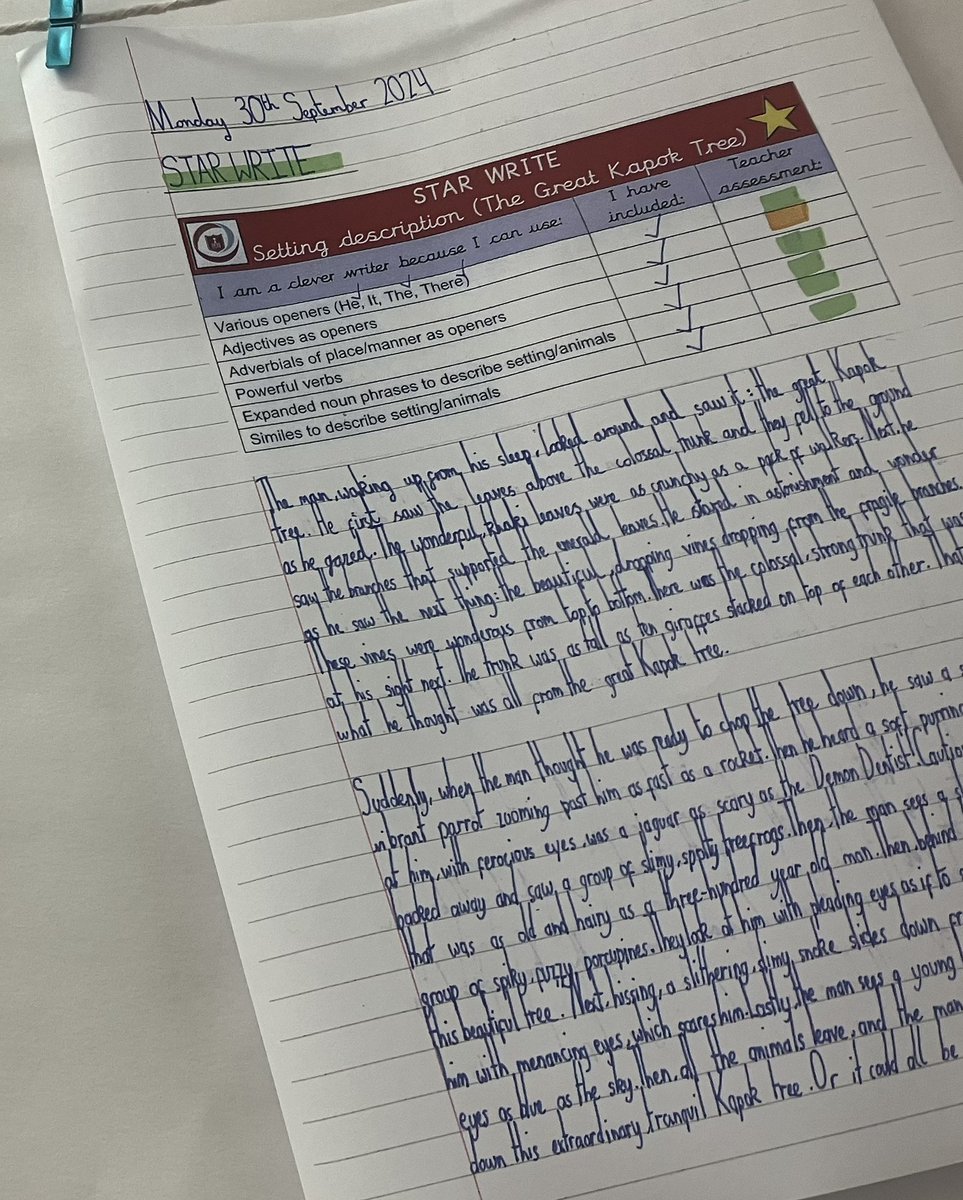 Monday 30th September 2024
STAR WRITE
STAR WRITE
Setting description (The Great Kapok Tree)
I am a clever writer because I can use:
I have included:
Teacher assessment:
Various openers (He, It, The, There)
Adjectives as openers
Adverbials of place/manner as openers
Powerful verbs
Expanded noun phrases to describe setting/animals
Similes to describe setting/animals
The man, waking up from his sleep, looked around and saw it: the great, Kapok
tree. He first saw the leaves above the colossal, trunk and they fell to the ground
as he gazed. The wonderful, khaki leaves were as crunchy as a pack of walkers. Next, he
saw the branches that supported the emerald leaves. He stared in astonishment and wonder
as he saw the next thing: the beautiful, dropping vines dropping from the fragile branches.
These vines were wonderous from top to bottom. There was the colossal, strong trunk that was
at his sight next. The trunk was as tall as ten giraffes stacked on top of each other. That
what he thought was all from the great Kapok tree.
Suddenly, when the man thought he was ready to chop the tree down, he saw a
vibrant parrot zooming past him as fast as a rocket. Then he heard a soft purring
at him, with ferocious eyes, was a jaguar as scary as the Demon Dentist.
backed away and saw, a group of slimy, spotty treefrogs. Then, the man sees a
that was as old and hairy as a three-hundred year old man. Then, behind
group of spiky, fuzzy, porcupines. They look at him with pleading eyes as if to
this beautiful tree. Next, hissing, a slithering, slimy, snake slides down
him with menancing eyes, which scares him. Lastly, the man sees a young
eyes as blue as the sky. Then, all the animals leave, and the man
down this extraordinary, tranquil Kapok tree. Or it could all be